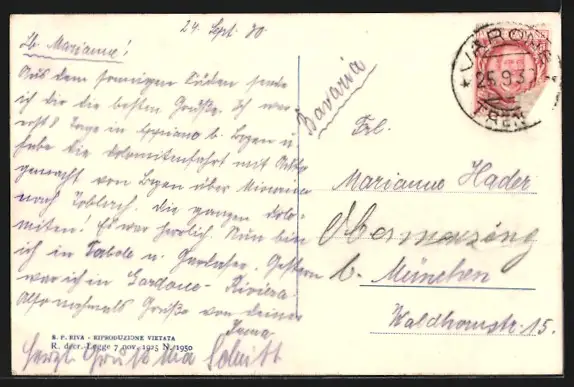 24 Sept. 30
Lb. Marianne!
Aus dem sonnigen Süden sende
ich dir die besten Grüße. Ich war
erst 8 Tage in Eppiano b. Bozen u.
habe die Dolomitenfahrt mit Auto
gemacht von Bozen über Misurina
nach Toblach. die ganzen Dolo-
miten! Es war herrlich. Nun bin
ich in Torbole u. Gardasee. Gestern
war ich in Gardone-Riviera
Also nochmals Grüße von deiner
Herzl. Gruß Schitt
Bavaria
Frl.
Marianne Hader
Obermenzing
b. München
Waldhornstr. 15.
VARONE
25.9.3
TREN
S. P. RIVA - RIPRODUZIONE VIETATA
R. decr. Legge 7 nov. 1925 N. 1950